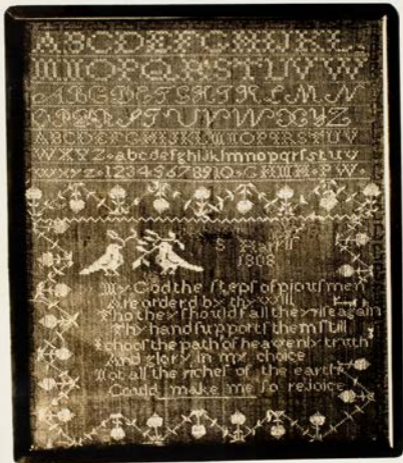 ABCDEFGHIJKL
MNOPQRSTUVW
ABCDEFGHIKLMN
OPQRSTUVWXYZ
ABCDEFGHIJKLMNOPQRSTUV
WXYZ·abcdefghijklmnopqrſstuv
wxyz·12345678910·
S
1808
My God the ſteps of pious men
Are orderd by thy will
Tho they ſhould fall they riſe again
Thy hand ſupports them ſtill
the path of heavenly truth
And glory in my choice
Not all the riches of the earth
Could make me ſo rejoice